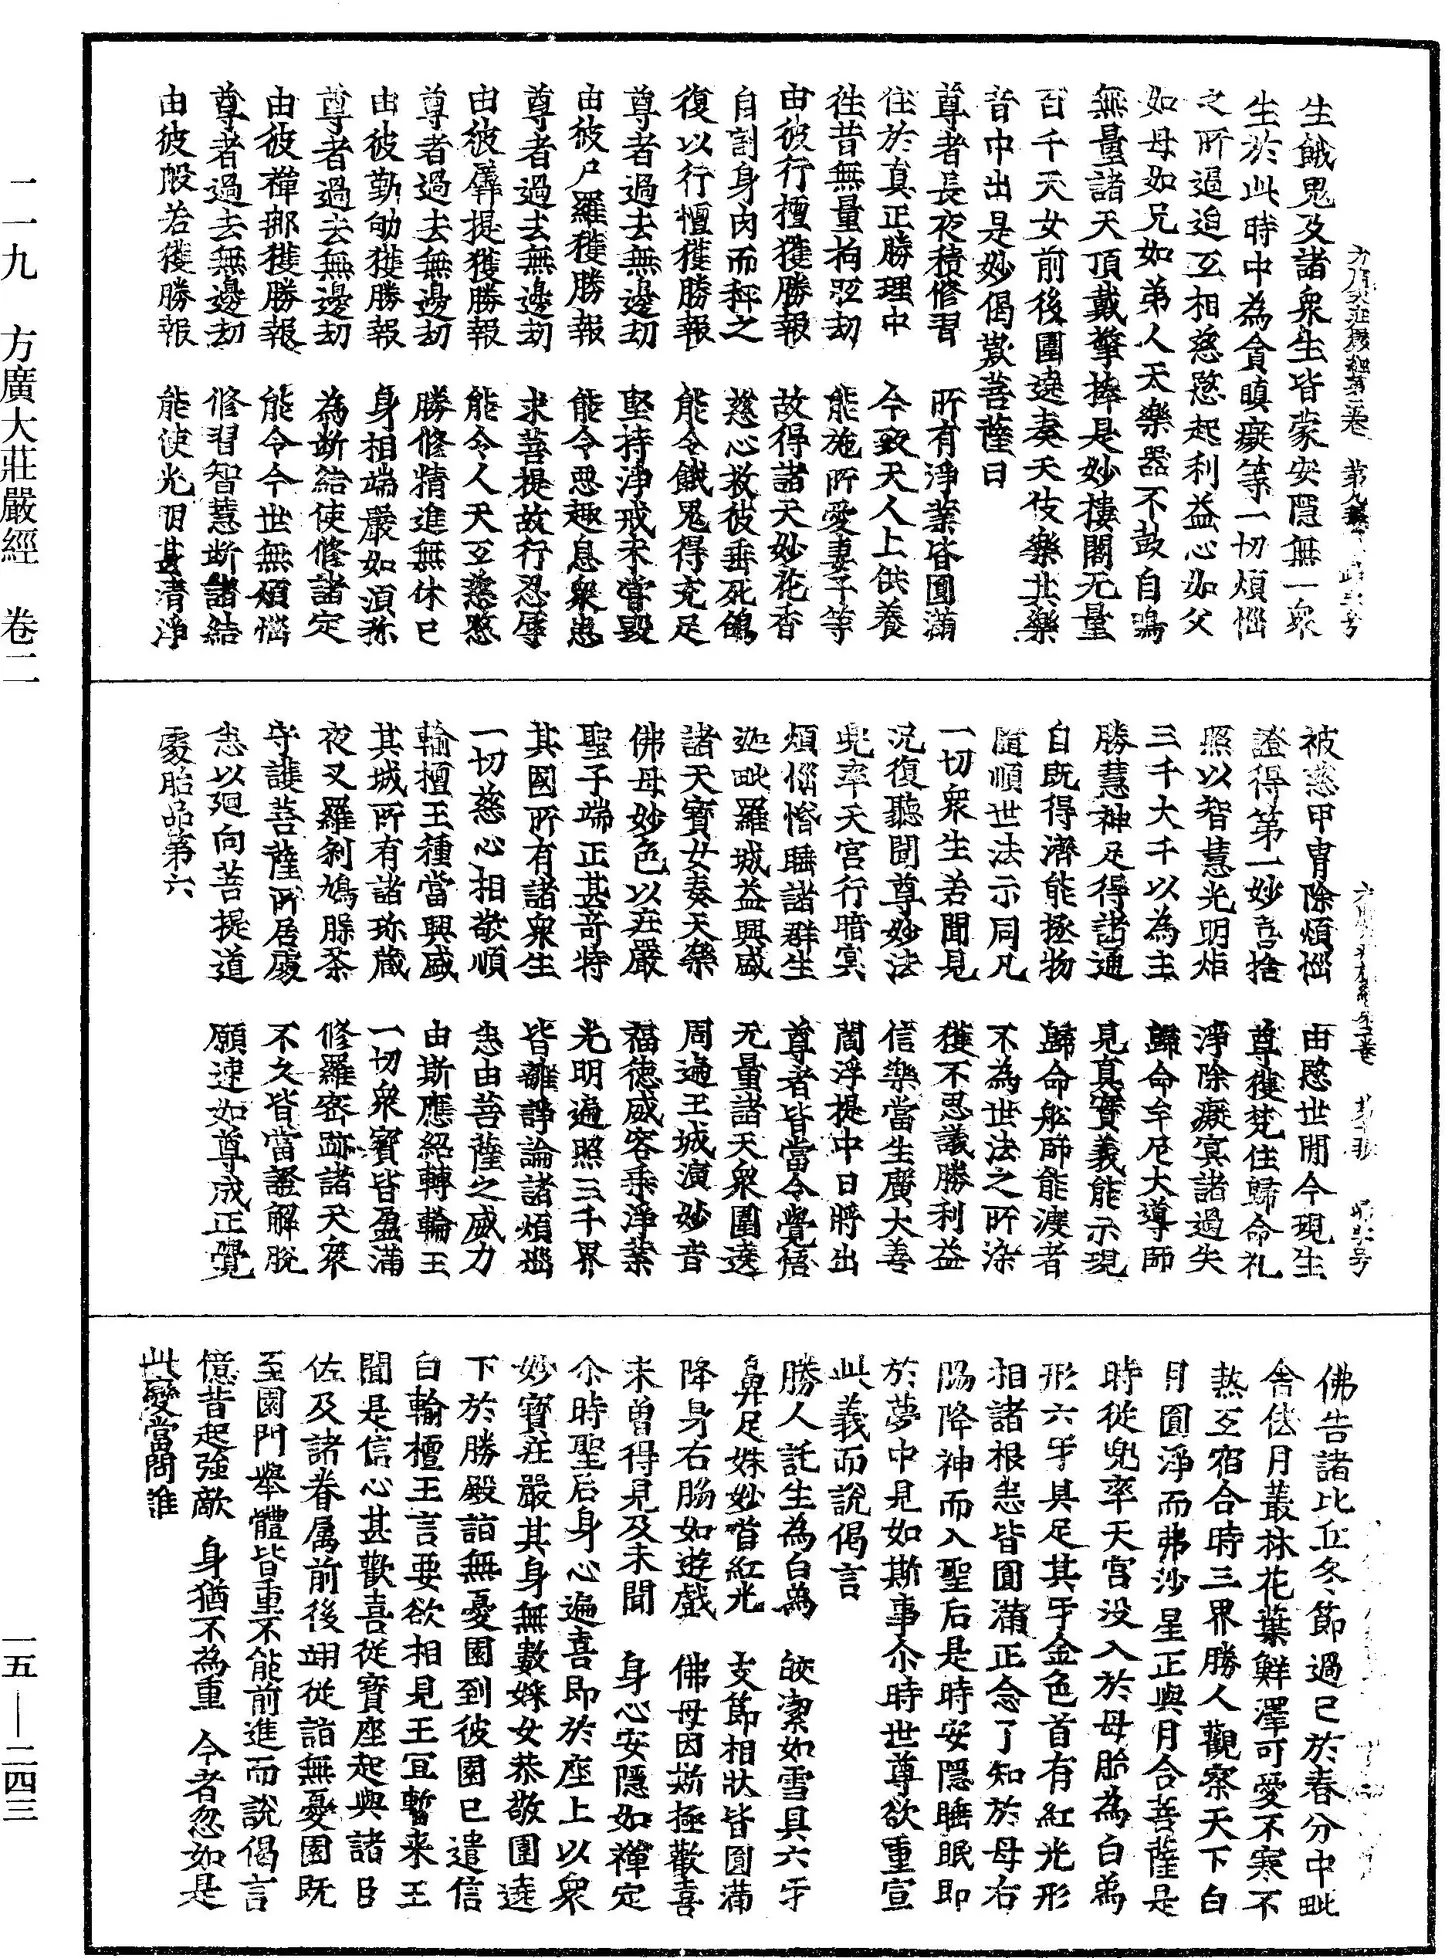 生餓鬼及諸衆生皆蒙安隱無一衆
生於此時中為貪瞋癡等一切煩惱
之所逼迫互相慈愍起利益心如父
如母如兄如弟人天樂器不鼓自鳴
無量諸天頂戴擎捧是妙樓閣无量
百千天女前後圍遶奏天伎樂其樂
音中出是妙偈歎菩薩曰
尊者長夜積修習 所有淨業皆圓滿
住於真正勝理中 今致天人上供養
往昔無量拘胝劫 能施所愛妻子等
由彼行檀獲勝報 故得諸天妙花香
自割身肉而秤之 慈心救彼垂死鴿
復以行檀獲勝報 能令餓鬼得充足
尊者過去無邊劫 堅持淨戒未嘗毀
由彼尸羅獲勝報 能令惡趣息衆患
尊者過去無邊劫 求菩提故行忍辱
由彼羼提獲勝報 能令人天互慈愍
尊者過去無邊劫 勝修精進無休已
由彼勤劬獲勝報 身相端嚴如須弥
尊者過去無邊劫 為断結使修諸定
由彼禪那獲勝報 能令今世無煩惱
尊者過去無邊劫 修習智慧断諸結
由彼般若獲勝報 能使光明甚清淨
被慈甲冑除煩惱 由愍世間今現生
證得第一妙喜捨 尊獲梵住歸命礼
照以智慧光明炬 淨除癡冥諸過失
三千大千以為主 歸命牟尼大導師
勝慧神足得諸通 見真實義能示現
自既得濟能拯物 歸命舩師能渡者
隨順世法示同凡 不為世法之所染
一切衆生若聞見 獲不思議勝利益
況復聽聞尊妙法 信樂當生廣大善
兜率天宮行暗冥 閻浮提中日將出
煩惱惛睡諸群生 尊者皆當令覺悟
迦毗羅城益興盛 无量諸天衆圍遶
諸天寶女奏天樂 周遍王城演妙音
佛母妙色以莊嚴 福德威容乘淨業
聖子端正甚奇特 光明遍照三千界
其國所有諸衆生 皆離諍論諸煩惱
一切慈心相敬順 悉由菩薩之威力
輸檀王種當興盛 由斯應紹轉輪王
其城所有諸珎藏 一切衆寶皆盈滿
夜叉羅剎鳩槃荼 修羅密跡諸天衆
守護菩薩所居處 不久皆當證解脫
悉以迴向菩提道 願速如尊成正覺
處胎品第六
佛告諸比丘冬節過已於春分中毗
舍佉月叢林花葉鮮澤可愛不寒不
熱氐宿合時三界勝人觀察天下白
月圓淨而弗沙星正與月合菩薩是
時從兜率天宮没入於母胎為白象
形六牙具足其牙金色首有紅光形
相諸根悉皆圓滿正念了知於母右
脇降神而入聖后是時安隱睡眠即
於夢中見如斯事尒時世尊欲重宣
此義而說偈言
勝人託生為白象 皎潔如雪具六牙
鼻足姝妙首紅光 支節相狀皆圓滿
降身右脇如遊戲 佛母因斯極歡喜
未曽得見及未聞 身心安隱如禪定
尒時聖后身心遍喜即於座上以衆
妙寶莊嚴其身無數婇女恭敬圍遶
下於勝殿詣無憂園到彼園已遣信
白輸檀王言要欲相見王宜暫来王
聞是信心甚歡喜從寶座起與諸臣
佐及諸眷属前後翊從詣無憂園既
至園門舉體皆重不能前進而說偈言
憶昔起強敵 身猶不為重 今者忽如是
此變當問誰
二一九 方廣大莊嚴經 卷二
一五—二四三